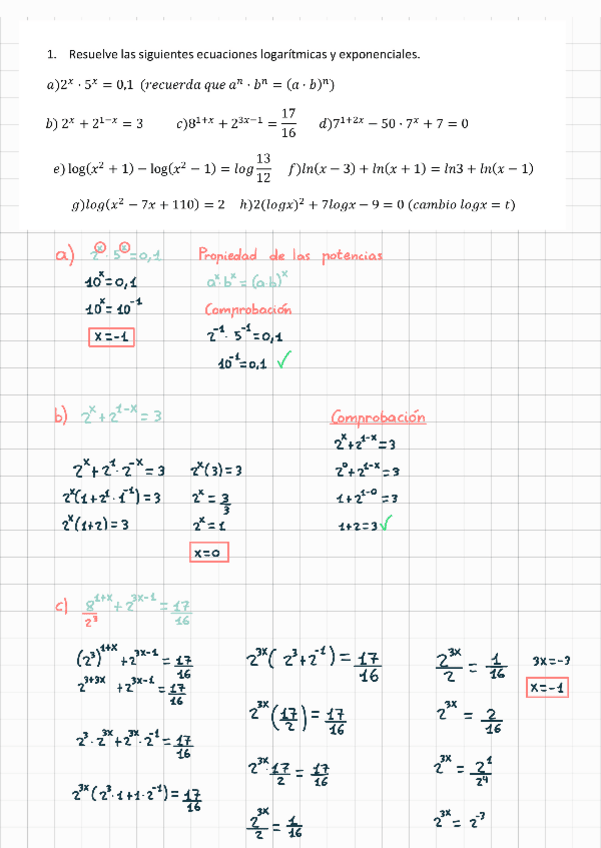 1. Resuelve las siguientes ecuaciones logarítmicas y exponenciales.
a)2^x · 5^x = 0,1 (recuerda que a^n · b^n = (a · b)^n)
b) 2^x + 2^(1−x) = 3 c)8^(1+x) + 2^(3x−1) = 17/16 d)7^(1+2x) − 50 · 7^x + 7 = 0
e) log(x² + 1) − log(x² − 1) = log 13/12 f)ln(x − 3) + ln(x + 1) = ln3 + ln(x − 1)
g)log(x² − 7x + 110) = 2 h)2(logx)² + 7logx − 9 = 0 (cambio logx = t)
a) 2^x · 5^x = 0,1 Propiedad de las potencias
10^x = 0,1 a^x · b^x = (a·b)^x
10^x = 10^-1 Comprobación
x = -1 2^-1 · 5^-1 = 0,1
10^-1 = 0,1 ✓
b) 2^x + 2^(1-x) = 3 Comprobación
2^x + 2^(1-x) = 3
2^x + 2^1 · 2^-x = 3 2^x(3) = 3 2^0 + 2^(1-x) = 3
2^x(1 + 2^1 · 1^-1) = 3 2^x = 3/3 1 + 2^(1-0) = 3
2^x(1+2) = 3 2^x = 1 1+2 = 3 ✓
x = 0
c) 8^(1+x) + 2^(3x-1) = 17/16
2^3
(2^3)^(1+x) + 2^(3x-1) = 17/16 2^3x (2^3 + 2^-1) = 17/16 2^3x/2 = 1/16 3x = -3
2^(3+3x) + 2^(3x-1) = 17/16 x = -1
2^3x (17/2) = 17/16 2^3x = 2/16
2^3 · 2^3x + 2^3x · 2^-1 = 17/16
2^3x · 17/2 = 17/16 2^3x = 2^1/2^4
2^3x (2^3 · 1 + 1 · 2^-1) = 17/16
2^3x/2 = 1/16 2^3x = 2^-3